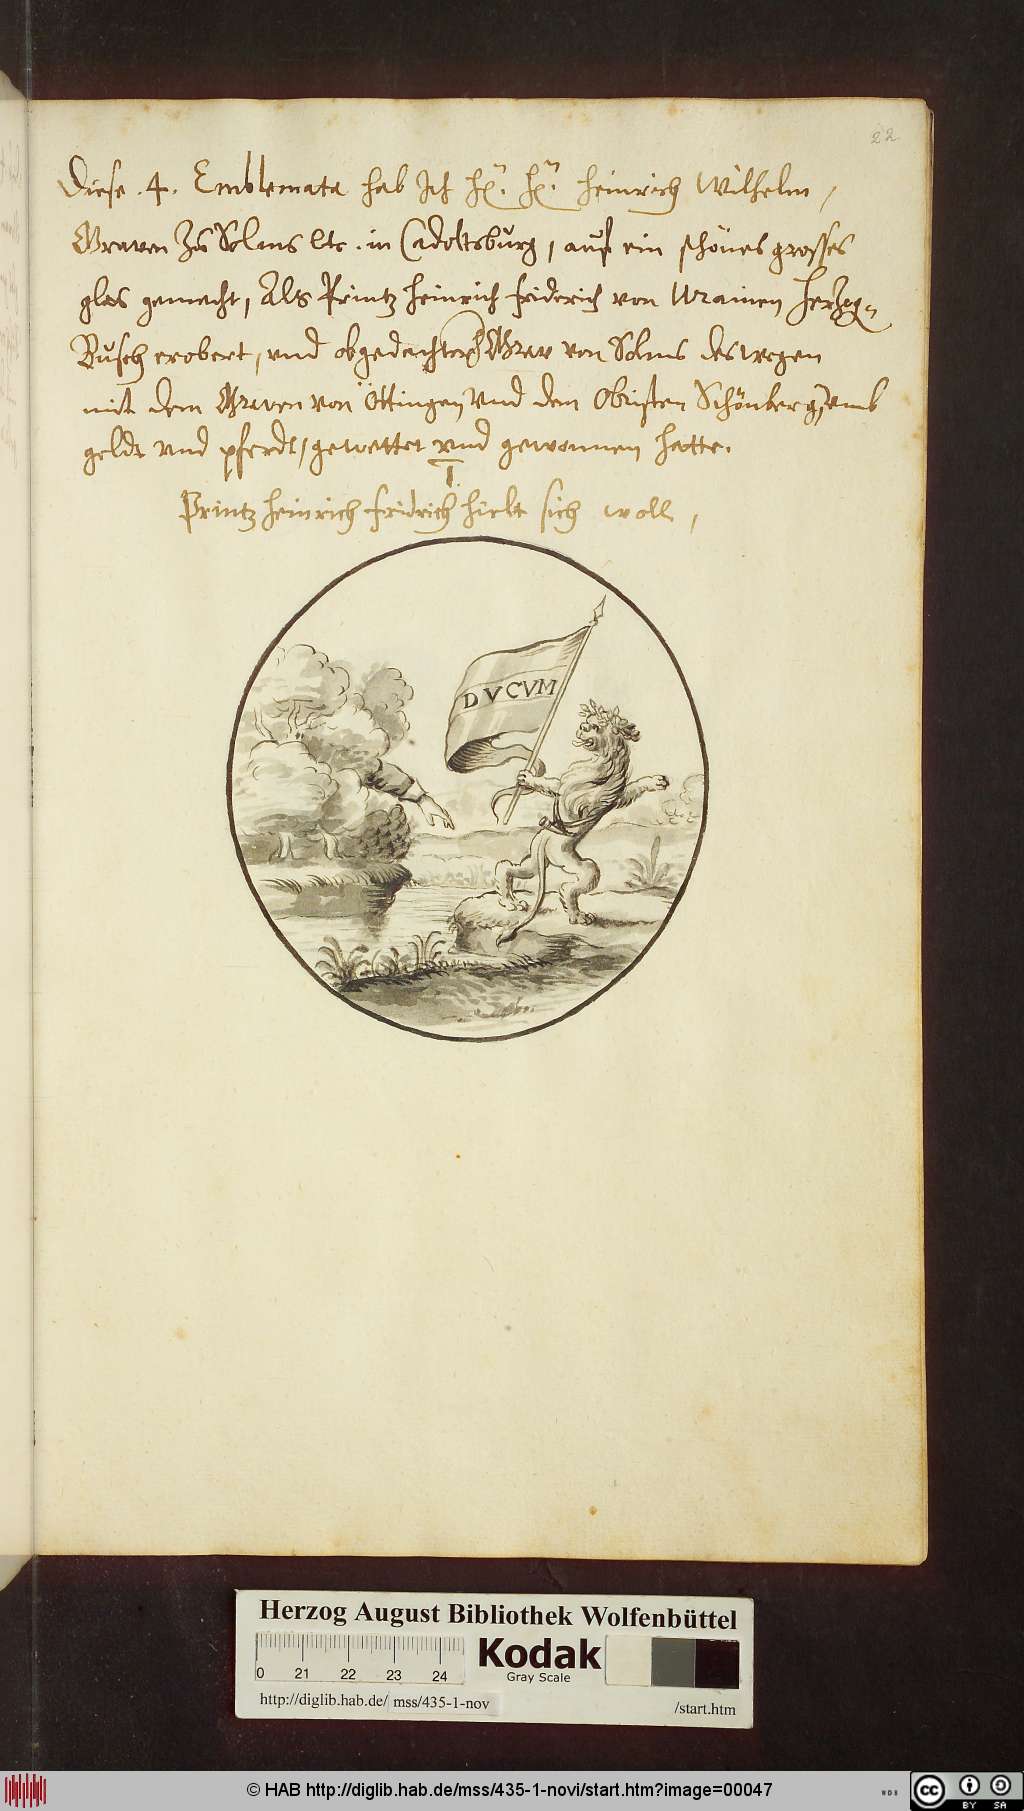 22
Diese .4. Emblemata hab Ich Hℓ. Hℓ. Heinrich Wilhelm,
Graven Zu Solms etc. in Cadoltsburg, auf ein schönes grosses
glas gemacht, Als Printz Heinrich Friderich von Uranien Hertzog-
Busch erobert, und obgedachter Grav von Solms deswegen
mit dem Graven von Öttingen und den Obristen Schönberg, umb
geldt und pferdt, gewettet und gewonnen hatte.
I.
Printz Heinrich Fridrich hielt sich woll,
DVCVM
Herzog August Bibliothek Wolfenbüttel
0 21 22 23 24
Kodak
Gray Scale
http://diglib.hab.de/ mss/435-1-nov /start.htm
© HAB http://diglib.hab.de/mss/435-1-novi/start.htm?image=00047
WDB
cc BY SA